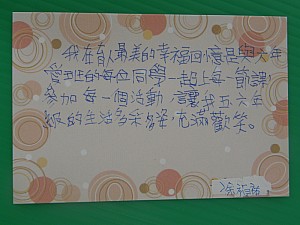 我在育人最美的幸福回憶是與六年
愛班的每位同學一起上每一節課,
參加每一個活動,這讓我五六年
級的生活多采多姿,充滿歡笑。